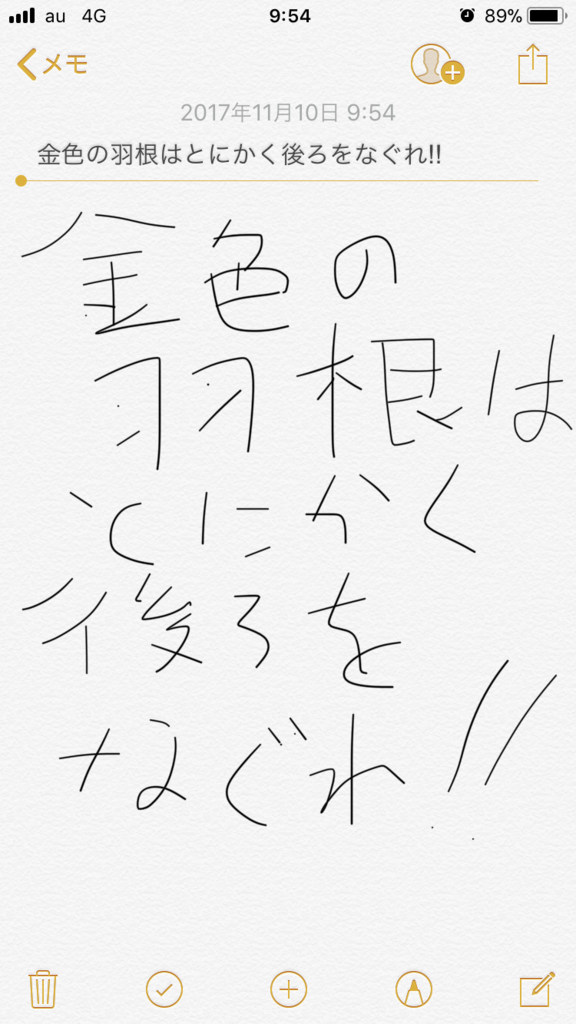 au 4G 9:54 89%
メモ
2017年11月10日 9:54
金色の羽根はとにかく後ろをなぐれ!!
金色の
羽根は
とにかく
後ろを
なぐれ!!